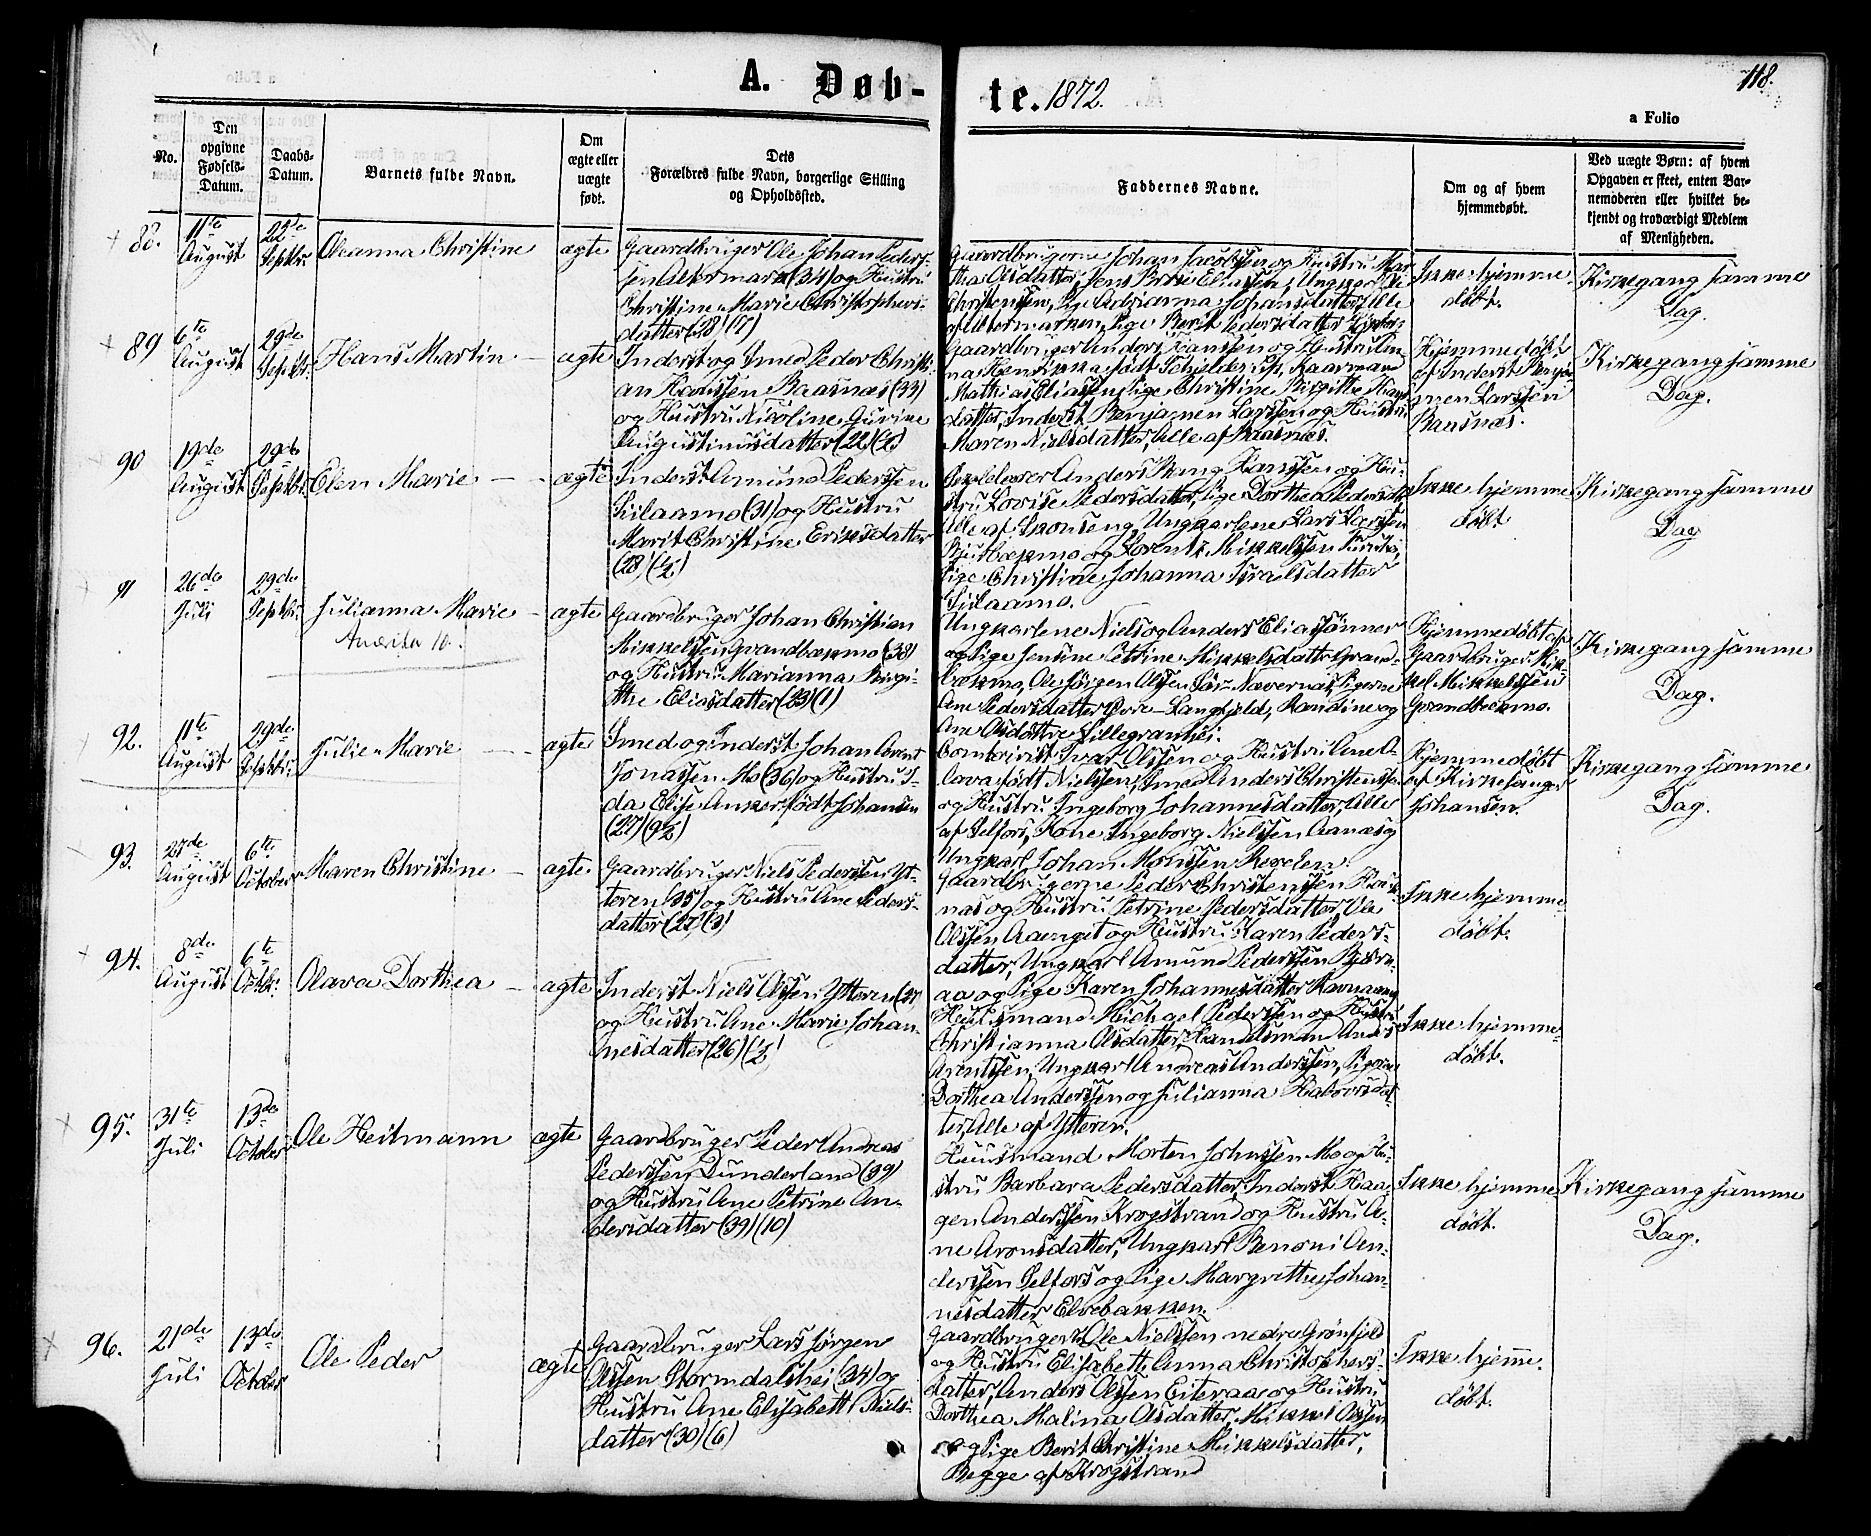 A. Døb-
te. 1872.
118.
a Folio
No.
Den opgivne Fødsels-Datum.
Daabs-Datum.
Barnets fulde Navn.
Om ægte eller uægte født.
Dets Forældres fulde Navn, borgerlige Stilling og Opholdssted.
Faddernes Navne.
Om og af hvem hjemmedøbt.
Ved uægte Børn: af hvem Opgaven er skeet, enten Barnemoderen eller hvilket bekjendt og troværdigt Medlem af Menigheden.
88.
11te August
22de Septbr.
Oleanna Christine
ægte
Gaardbruger Ole Johan Peders-
sen Altermark (34) og Hustru
Christine Marie Christophers-
datter (28) (7)
Gaardbrugerne Johan Jacobssen og Hustru Mar-
tha Olsdatter, Jens Brise Eliassen, Ungkarl
Christenssen, Pige Adrianna Johansdatter, Alle
af Altermarken, Pige Berit Pedersdatter
Ikke hjemme
døbt.
Kirkegang samme
Dag.
89
6te August
29de Septbr.
Hans Martin
ægte
Inderst og Smed Peder Christi-
an Hanssen Baasnæs (33)
og Hustru Nicoline Gurine
Augustinusdatter (22)
Gaardbruger Anders Hanssen og Hustru An-
na Henrikka født Schjelderup, Kaarmand
Mathias Eliassen, Pige Christine Birgitte Hans-
datter, Inderst Benjamen Larssen og Hustru
Maren Nielsdatter, Alle af Baasnæs.
Hjemmedøbt
af Inderst Benja-
men Larssen
Baasnæs.
Kirkegang samme
Dag.
90
19de August
29de Septbr.
Elen Marie
ægte
Inderst Amund Pederssen
Selaamo (31) og Hustru
Marit Christine Eriksdatter
(28) (½)
Anders Bang Hanssen og Hu-
stru Lovise Pedersdatter, Pige Dorthea Pedersdtr
Alle af Skonseng, Ungkarlene Lars Larssen
og Lorents Mikkelssen
Pige Christine Johanna Israelsdatter
Selaamo.
Ikke hjemme
døbt
Kirkegang samme
Dag
91
26de Juli
29de Septbr.
Julianna Marie
ægte
Gaardbruger Johan Christian
Mikkelssen Grandbækmo (38)
og Hustru Marianna Birgi-
the Eliasdatter (23) (1)
Ungkarlene Niels og Anders Eliassønner
og Pige Jensine Petrine Mikkelsdatter Grand-
bækmo, Ole Jørgen Olssen Sør-Nævernæs, Pigerne
Ane Pedersdatter Øvre-Langfjeld, Randine og
Ane Olsdøttre Lillegranhei.
Hjemmedøbt af
Gaardbruger Mik-
kel Mikkelssen
Grandbækmo.
Kirkegang samme
Dag.
92.
11te August
29de Septbr.
Julie Marie
ægte
Smed og Inderst Johan Arent
Jonassen Mo (36) og Hustru I-
da Elise Anker født Johansen
(27) (9½)
Contorist Ivar Olssen og Hustru Ane O-
lava født Nielssen, Smed Anders Christenssen
og Hustru Ingeborg Johannesdatter, Alle
af Selfors, Kone Ingeborg Nielssen Aanæs og
Ungkarl Johan Monssen Revelen.
Hjemmedøbt
af Kirkesanger
Johansen.
Kirkegang samme
Dag.
93.
27de August
6te October
Maren Christine
ægte
Gaardbruger Niels Pederssen Yt-
teren (35) og Hustru Ane Peders-
datter (22) (3)
Gaardbrugerne Peder Christenssen
næs og Hustru Petrine Pedersdatter, Ole
Olssen Aaengit og Hustru Karen Peders-
datter, Ungkarl Amund Pederssen Bjørn-
aa og Pige Karen Johannesdatter
Ikke hjemme-
døbt.
94.
8de August
6te Octbr.
Olava Dorthea
ægte
Inderst Niels Olssen Ytteren (27)
og Hustru Ane Marie Johan-
nesdatter (26) (½)
Huusmand Michael Pederssen og Hustru
Christianna Olsdatter, Handelsmand
Arentssen, Ungkarl Andreas Anderssen, Pigerne
Dorthea Anderssen og Julianna Halvorsdat-
ter, Alle af Ytteren.
Ikke hjemme-
døbt.
95.
31te Juli
13de October
Ole Heitmann
ægte
Gaardbruger Peder Andreas
Pederssen, Dunderland (39)
og Hustru Ane Petrine An-
dersdatter (39) (10)
Huusmand Morten Johnssen Mo og Hu-
stru Barbara Pedersdatter, Inderst Haa-
gen Anderssen Krogstrand og Hustru A-
ne Aronsdatter, Ungkarl Benoni An-
derssen Selfors og Pige Margrethe Johan-
nesdatter Elvebakken.
Ikke hjemme
døbt.
Kirkegang samme
Dag.
96.
21de Juli
13de October
Ole Peder
ægte
Gaardbruger Lars Jørgen
Olssen Stormdalshei (34) og
Hustru Ane Elisabeth Niels-
datter (30) (6)
Gaardbrugerne Ole Nielssen nedre Grønfjeld
og Hustru Elisabeth Anna Christophers-
datter, Anders Olssen Eiteraa og Hustru
Dorthea Malina Olsdatter, Mikkel Olssen
og Pige Berit Christine Mikkelsdatter,
Begge af Krogstrand
Ikke hjemme.
døbt.